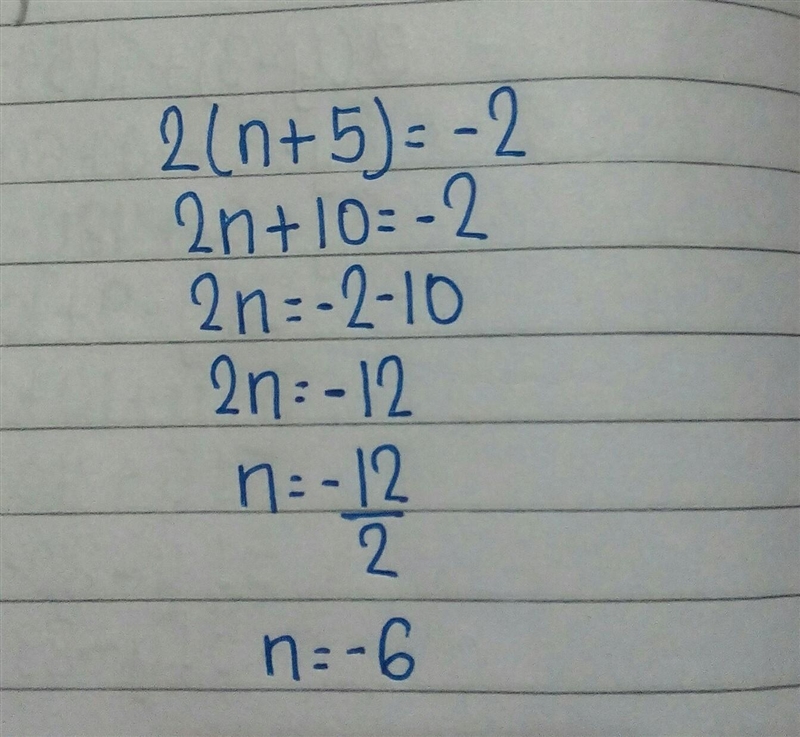 2(n+5)= -2
2n+10=-2
2n=-2-10
2n=-12
n=-12/2
n=-6